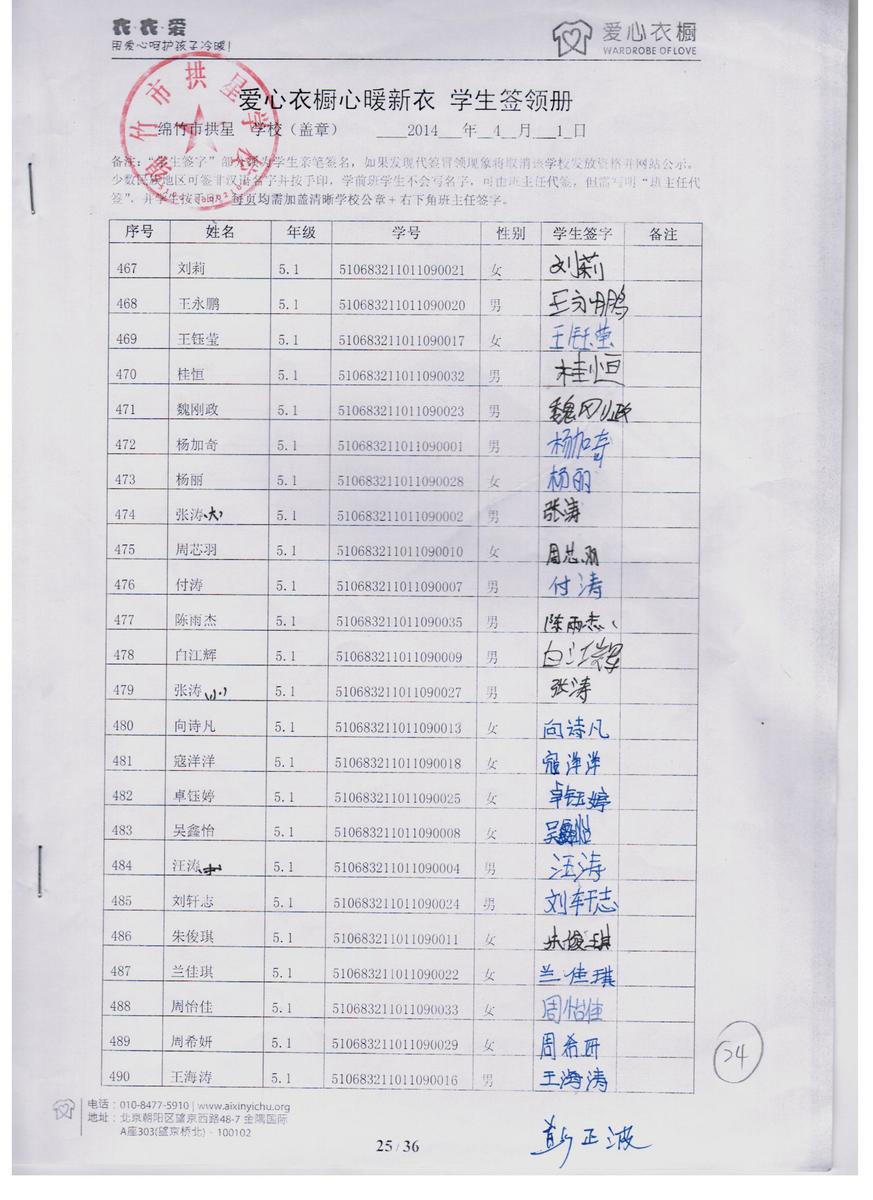 衣·衣·爱
用爱心呵护孩子冷暖!
爱心衣橱
WARDROBE OF LOVE
爱心衣橱心暖新衣 学生签领册
绵竹市拱星 学校（盖章） 2014 年 4 月 1 日
备注：“学生签字”部分须为学生亲笔签名，如果发现代签冒领现象将取消该学校发放资格并网站公示。
少数民族地区可签非汉语名字并按手印，学前班学生不会写名字，可由班主任代签，但需写明“班主任代
签”，并学生按手印。每页均需加盖清晰学校公章+右下角班主任签字。
序号 姓名 年级 学号 性别 学生签字 备注
467 刘莉 5.1 510683211011090021 女 刘莉
468 王永鹏 5.1 510683211011090020 男 王永鹏
469 王钰莹 5.1 510683211011090017 女 王钰莹
470 桂恒 5.1 510683211011090032 男 桂恒
471 魏刚政 5.1 510683211011090023 男 魏刚政
472 杨加奇 5.1 510683211011090001 男 杨加奇
473 杨丽 5.1 510683211011090028 女 杨丽
474 张涛(大) 5.1 510683211011090002 男 张涛
475 周芯羽 5.1 510683211011090010 女 周芯羽
476 付涛 5.1 510683211011090007 男 付涛
477 陈雨杰 5.1 510683211011090035 男 陈雨杰
478 白江辉 5.1 510683211011090009 男 白江辉
479 张涛(小) 5.1 510683211011090027 男 张涛
480 向诗凡 5.1 510683211011090013 女 向诗凡
481 寇洋洋 5.1 510683211011090018 女 寇洋洋
482 卓钰婷 5.1 510683211011090025 女 卓钰婷
483 吴鑫怡 5.1 510683211011090008 女 吴鑫怡
484 汪涛 5.1 510683211011090004 男 汪涛
485 刘轩志 5.1 510683211011090024 男 刘轩志
486 朱俊琪 5.1 510683211011090011 女 朱俊琪
487 兰佳琪 5.1 510683211011090022 女 兰佳琪
488 周怡佳 5.1 510683211011090033 女 周怡佳
489 周希妍 5.1 510683211011090029 女 周希妍
490 王海涛 5.1 510683211011090016 男 王海涛
24
电话：010-8477-5910 | www.aixinyichu.org
地址：北京朝阳区望京西路48-7 金隅国际
A座303(望京桥北) - 100102
25 / 36
彭正波